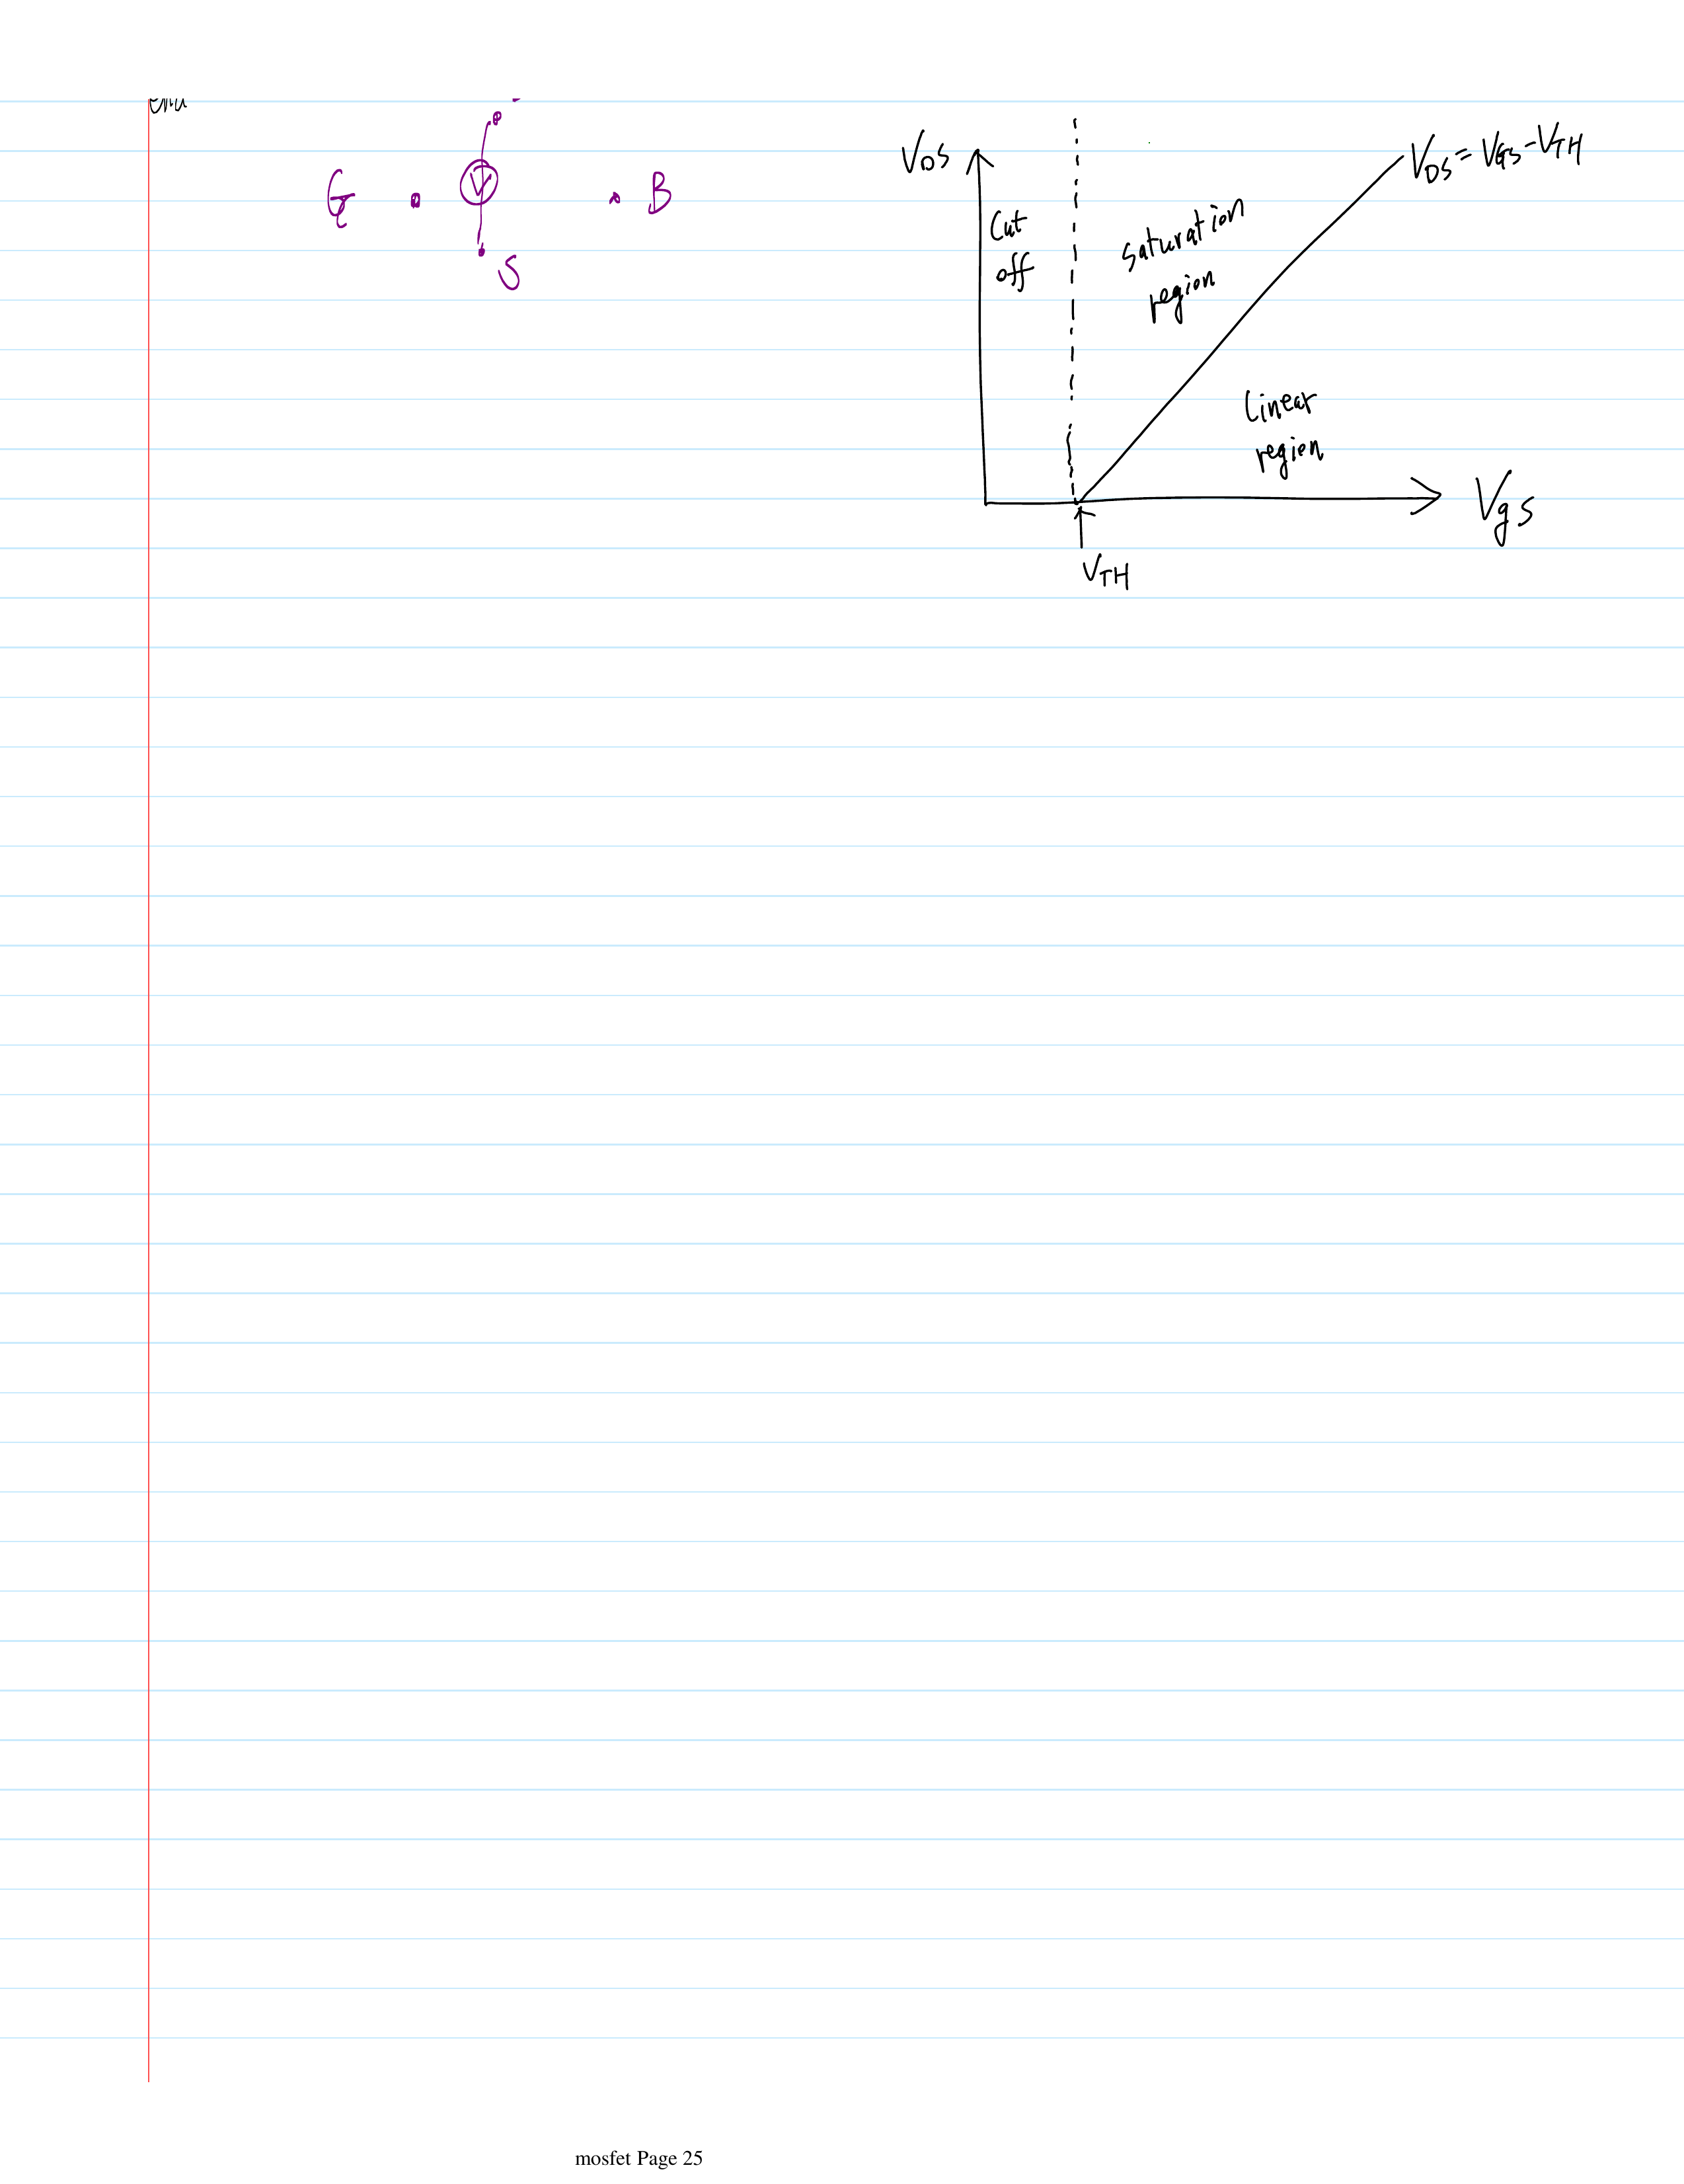 G
B
S
VDS
Cut
off
saturation
region
VDS = VGS - VTH
linear
region
Vgs
VTH
mosfet Page 25